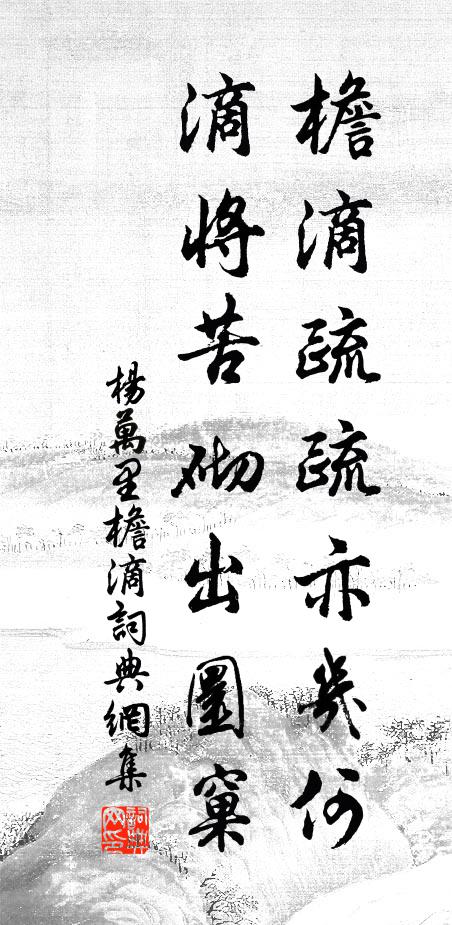 檐滴疏疏亦幾何
滴將苦砌出圜窠
楊萬里檐滴詞典網集
詞典网印